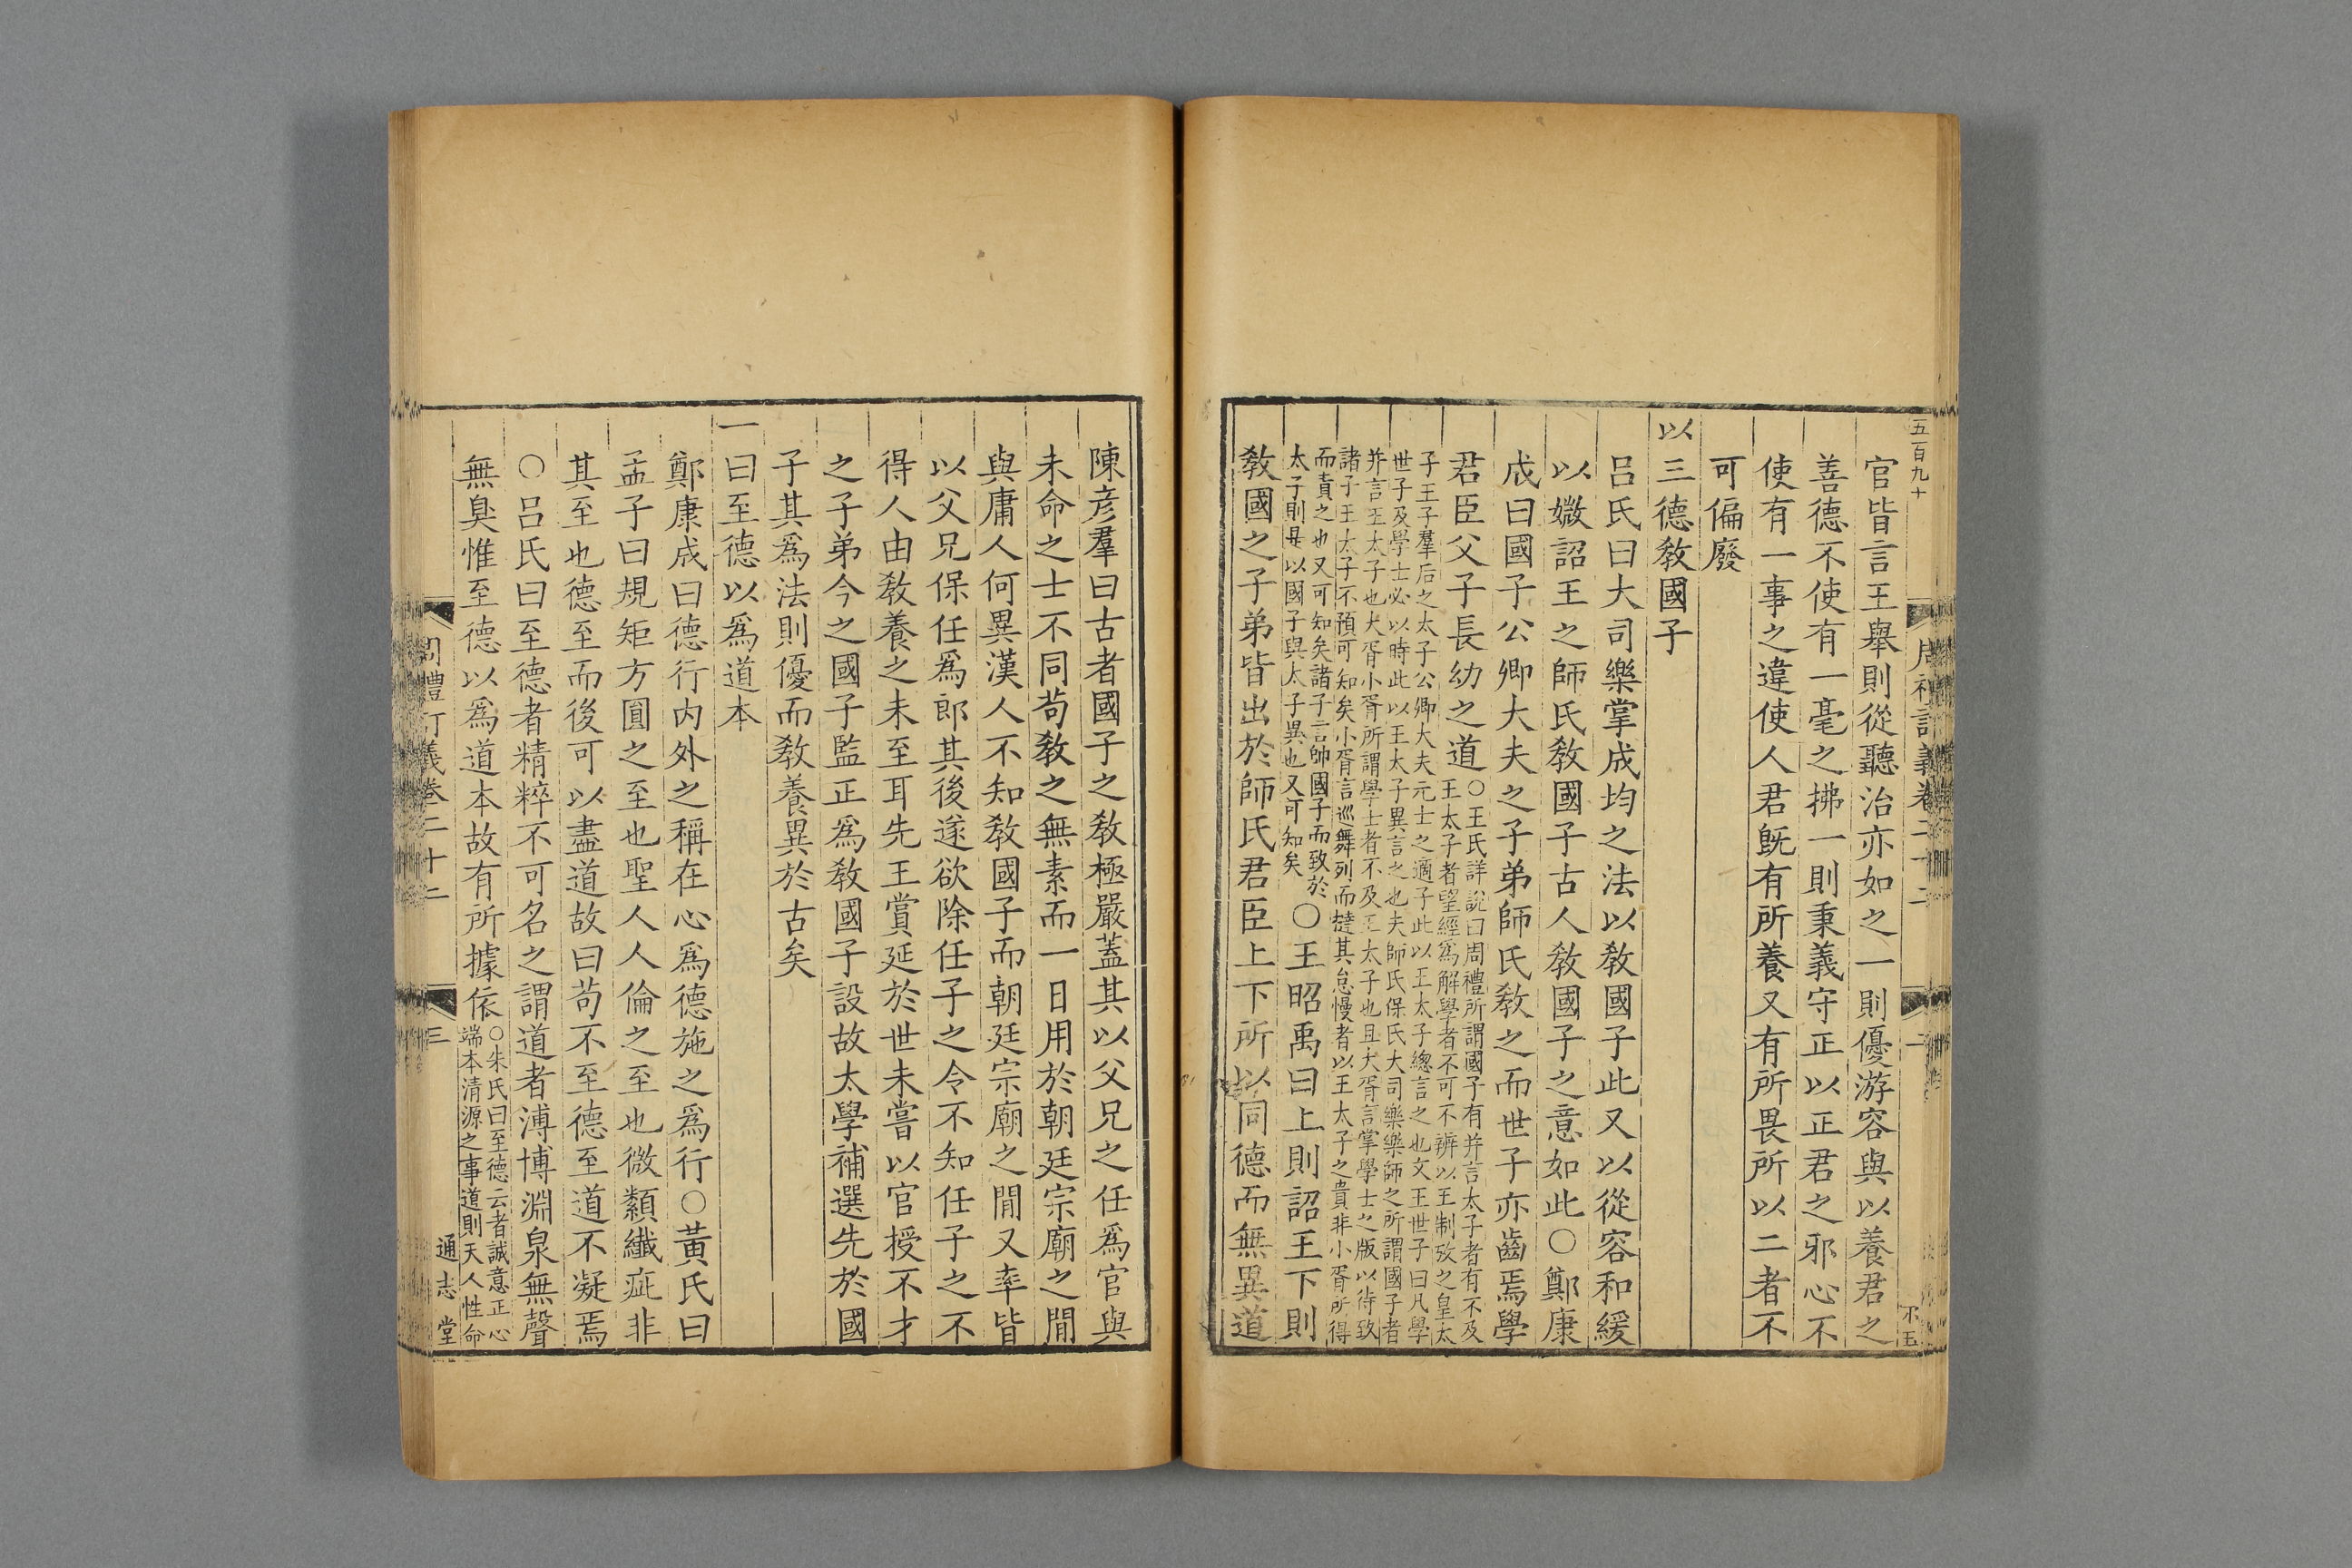 五百九十
官皆言王舉則從聽治亦如之一則優游容與以養君之
善德不使有一毫之拂一則秉義守正以正君之邪心不
使有一事之違使人君旣有所養又有所畏所以二者不
可偏廢
以三德敎國子
呂氏曰大司樂掌成均之法以敎國子此又以從容和緩
以媺詔王之師氏敎國子古人敎國子之意如此○鄭康
成曰國子公卿大夫之子弟師氏敎之而世子亦齒焉學
君臣父子長幼之道
○王氏詳說曰周禮所謂國子有并言太子者有不及
王太子者望經爲解學者不可不辨以王制攷之皇太
子王子羣后之太子公卿大夫元士之適子此以王太子總言之也文王世子曰凡學
世子及學士必以時此以王太子異言之也夫師氏保氏大司樂樂師之所謂國子者
并言王太子也大胥小胥所謂學士者不及王太子也且大胥言掌學士之版以待致
諸子王太子不預可知矣小胥言巡舞列而撻其怠慢者以王太子之貴非小胥所得
而責之也又可知矣諸子言帥國子而致於
太子則是以國子與太子異也又可知矣
○王昭禹曰上則詔王下則
敎國之子弟皆出於師氏君臣上下所以同德而無異道
陳彦羣曰古者國子之敎極嚴蓋其以父兄之任爲官與
未命之士不同苟敎之無素而一日用於朝廷宗廟之閒
與庸人何異漢人不知敎國子而朝廷宗廟之閒又率皆
以父兄保任爲郎其後遂欲除任子之令不知任子之不
得人由敎養之未至耳先王賞延於世未嘗以官授不才
之子弟今之國子監正爲敎國子設故太學補選先於國
子其爲法則優而敎養異於古矣
一曰至德以爲道本
鄭康成曰德行內外之稱在心爲德施之爲行○黃氏曰
孟子曰規矩方圓之至也聖人人倫之至也微纇纖疵非
其至也德至而後可以盡道故曰苟不至德至道不凝焉
○呂氏曰至德者精粹不可名之謂道者溥博淵泉無聲
無臭惟至德以爲道本故有所據依
○朱氏曰至德云者誠意正心
端本清源之事道則天人性命
周禮訂義卷二十二
三
通志堂